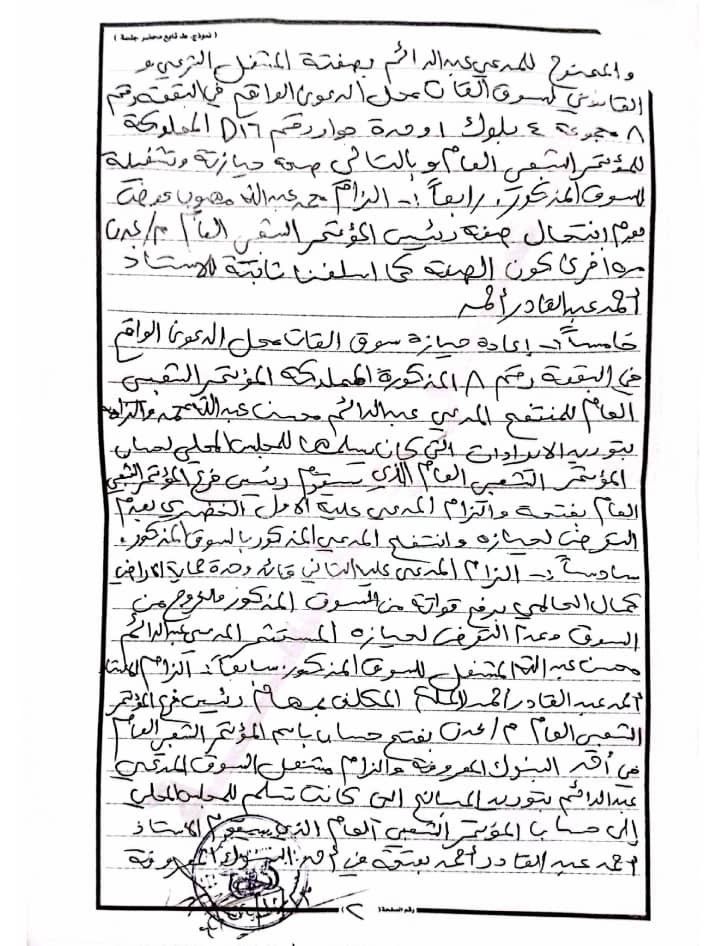 ( نموذج عام تابع محضر جلسة )
والممنوح للمدعي عبدالدائم بصفتة المشغل الشرعي و
القانوني لسوق القات محل الدعوى الواقع في البقعة رقم
٨ مجموعة ٤ بلوك ١ وحدة جوار رقم D١٦ المملوكة
للمؤتمر الشعبي العام وبالتالي صحة حيازتة وتشغيلة
للسوق المذكور. رابعاً :- الزام محمد عبدالله مهيوب عوض
بعدم انتحال صفة رئيس المؤتمر الشعبي العام م/عدن
مرة اخرى كون الصفة كما اسلفنا ثابتة للاستاذ
أحمد عبدالقادر أحمد
خامساً :- إعادة حيازة سوق القات محل الدعوى الواقع
في البقعة رقم ٨ المذكورة المملوكة المؤتمر الشعبي
العام للمنتفع المدعي عبدالدائم محسن عبدالله محمد والزامه
بتوريد الايرادات التي كان يسلمها للمجلس المحلي لحساب
المؤتمر الشعبي العام الذي سيقوم رئيس فرع المؤتمر الشعبي
العام بفتحة والزام المدعي علية الاول الخضري بعدم
التعرض لحيازه وانتفع المدعي المذكور بالسوق المذكور.
سادساً :- الزام المدعي عليه الثاني قائد وحدة حماية الاراضي
كمال الحالمي برفع قواتة من السوق المذكور والخروج من
السوق وعدم التعرض لحيازه المستثمر المدعي عبدالدائم
محسن عبدالله المشغل للسوق المذكور. سابعاً :- الزام الاستاذ
أحمد عبدالقادر أحمد المكلف بمهام رئيس فرع المؤتمر
الشعبي العام م/عدن بفتح حساب باسم المؤتمر الشعبي العام
في أحد البنوك المعروفة والزام مشغل السوق المدعي
عبدالدائم بتوريد المبالغ التي كانت تسلم للمجلس المحلي
إلى حساب المؤتمر الشعبي العام الذي سيقوم الاستاذ
أحمد عبدالقادر أحمد بفتحة في أحد البنوك المعروفة
رقم الصفحة ( ٢ )